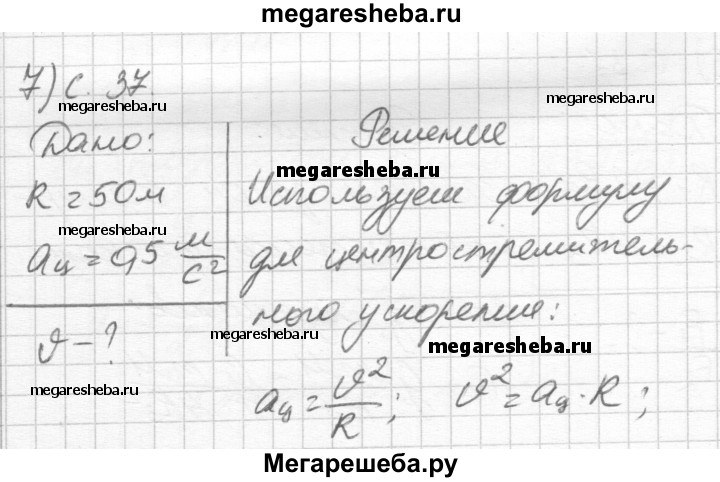 megaresheba.ru
7) с. 37.
megaresheba.ru
megaresheba.ru
Дано:
R = 50 м
aц = 0,5 м/с²
υ - ?
megaresheba.ru
Решение
megaresheba.ru
Используем формулу
для центростремитель-
ного ускорения:
megaresheba.ru
megaresheba.ru
aц = υ²/R; υ² = aц · R;
Мегарешеба.ру